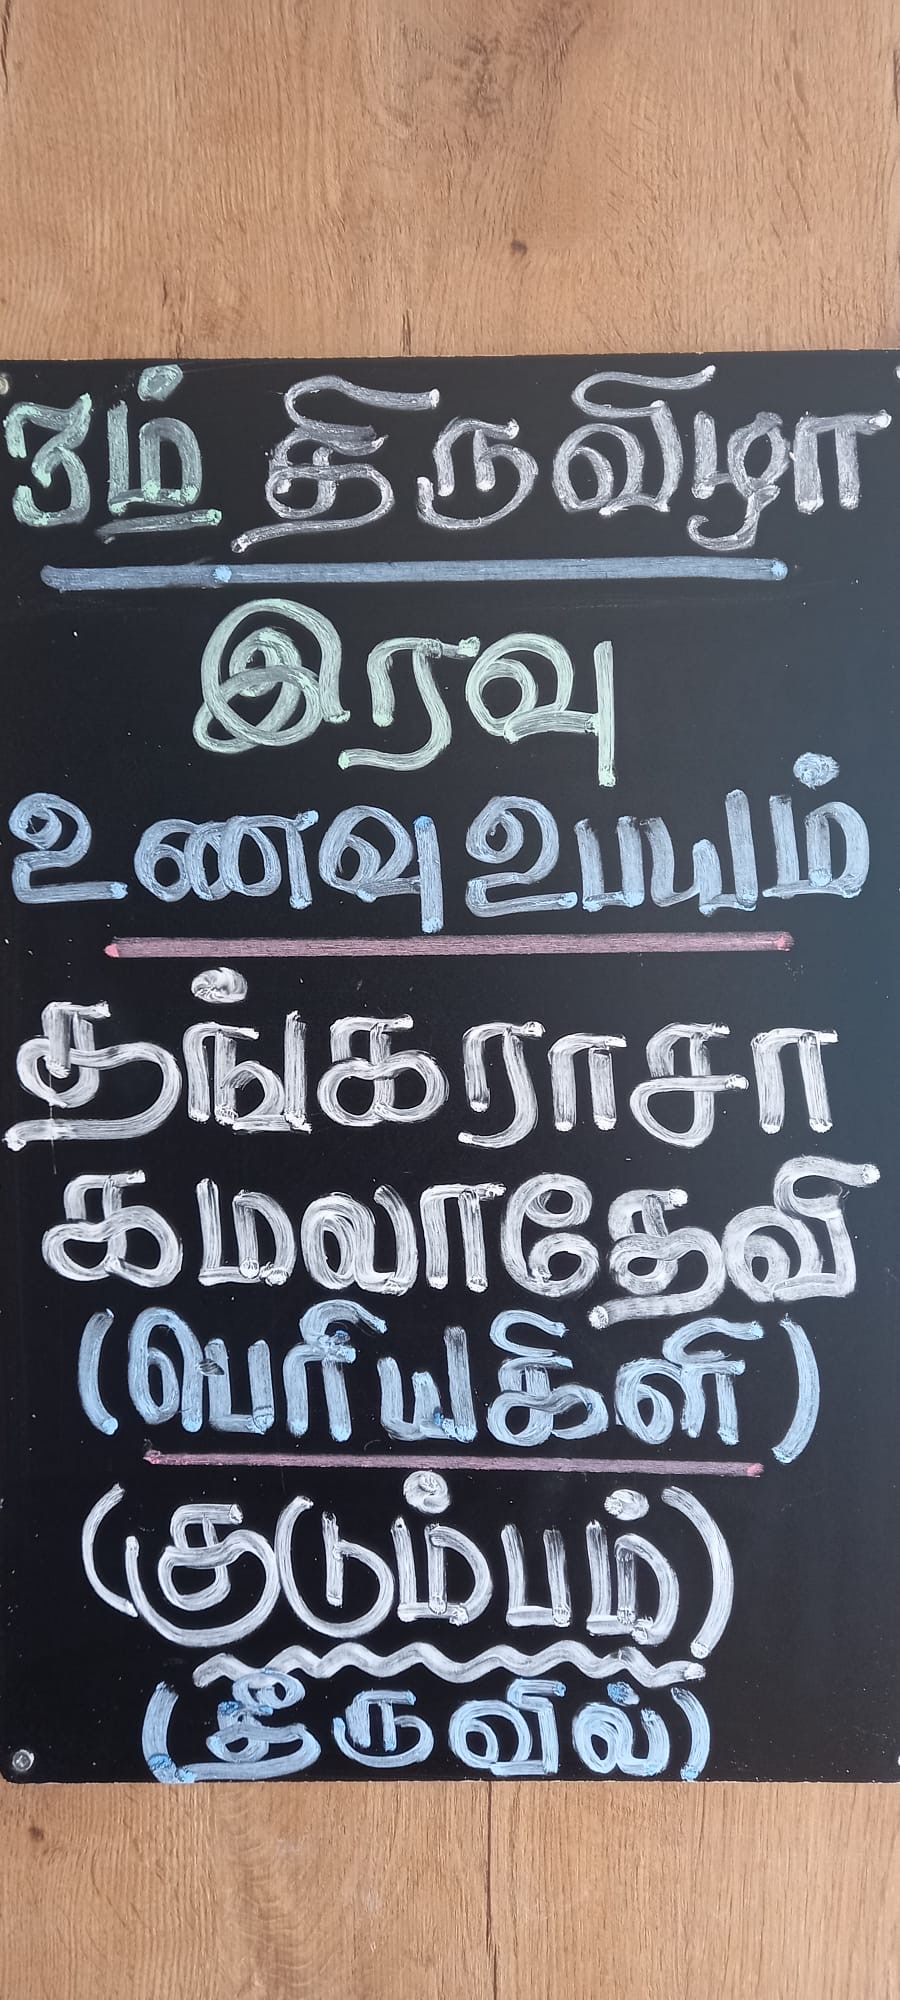 3ம் திருவிழா
இரவு
உணவு உபயம்
தங்கராசா
கமலாதேவி
(பெரியகிளி)
(குடும்பம்)
(தீருவில்)